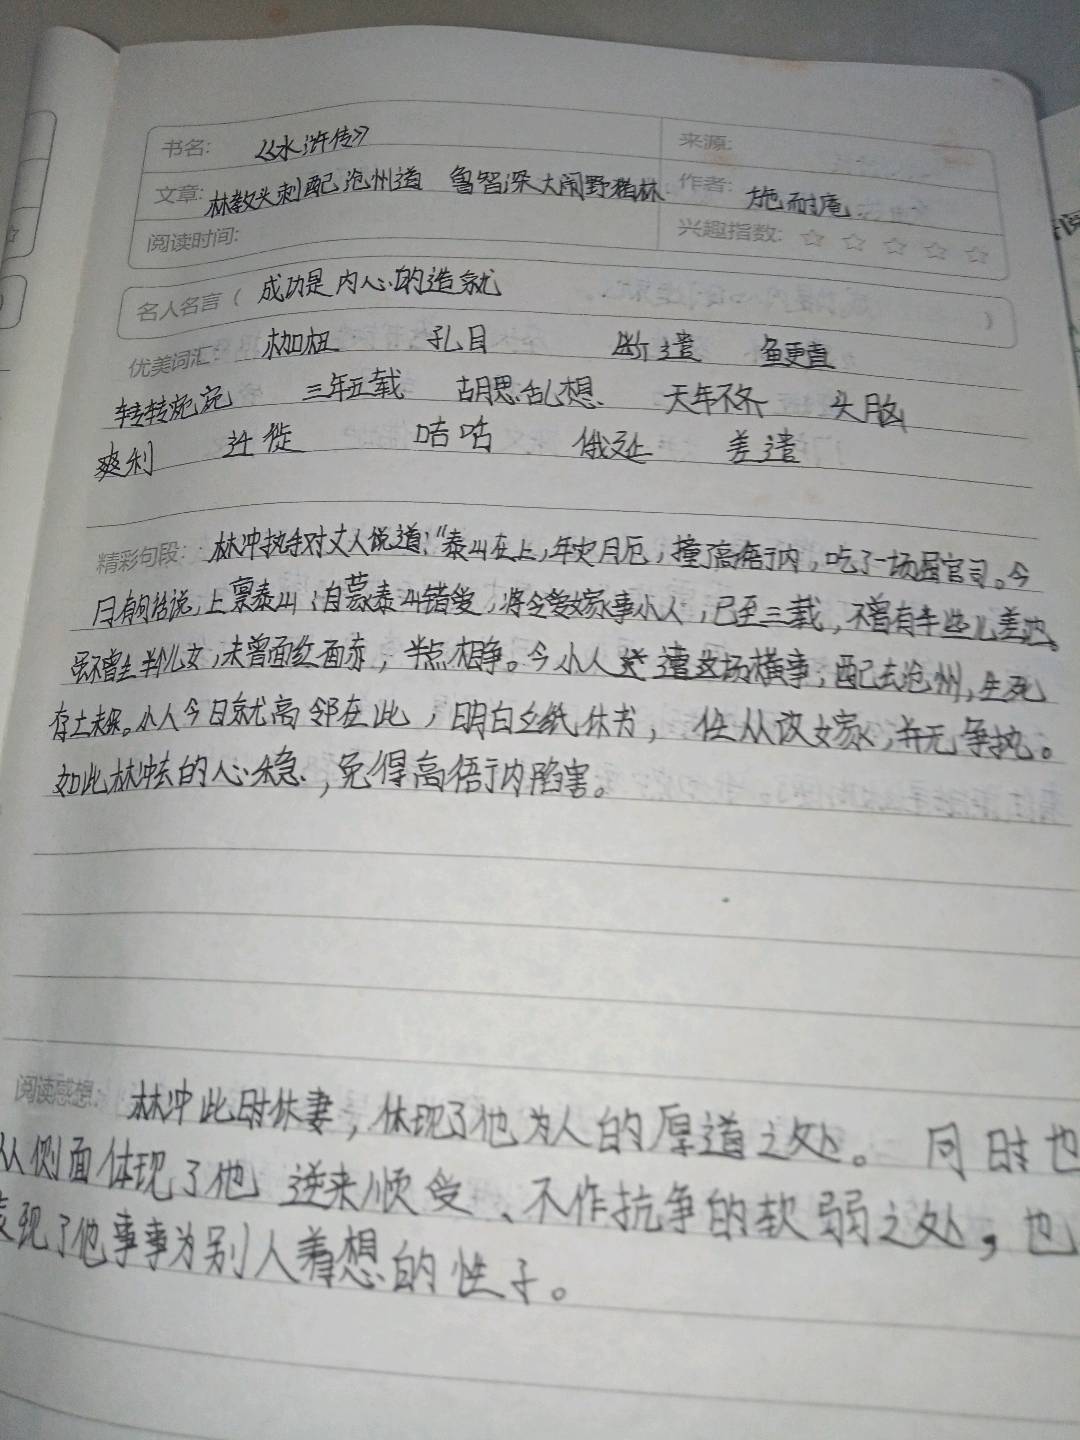 书名: 《水浒传》 来源:
文章: 林教头刺配沧州道 鲁智深大闹野猪林 作者: 施耐庵
阅读时间: 兴趣指数: ☆ ☆ ☆ ☆ ☆
名人名言（ 成功是内心的造就 ）
优美词汇: 枷杻 孔目 断遣 鲠直
转转宛宛 三年五载 胡思乱想 天年不齐 头脑
爽利 迁徙 咭咕 俄延 差遣
精彩句段: 林冲执手对丈人说道:“泰山在上,年灾月厄,撞了高衙内,吃了一场屈官司。今
日有句话说,上禀泰山:自蒙泰山错爱,将令爱嫁事小人,已至三载,不曾有半些儿差池。
虽不曾生半个儿女,未曾面红面赤,半点相争。今小人遭这场横事,配去沧州,生死
存亡未保。小人今日就高邻在此,明白立纸休书,任从改嫁,并无争执。
如此林冲去的心稳,免得高衙内陷害。
阅读感想: 林冲此时休妻,体现了他为人的厚道之处。同时也
从侧面体现了他逆来顺受、不作抗争的软弱之处,也
表现了他事事为别人着想的性子。